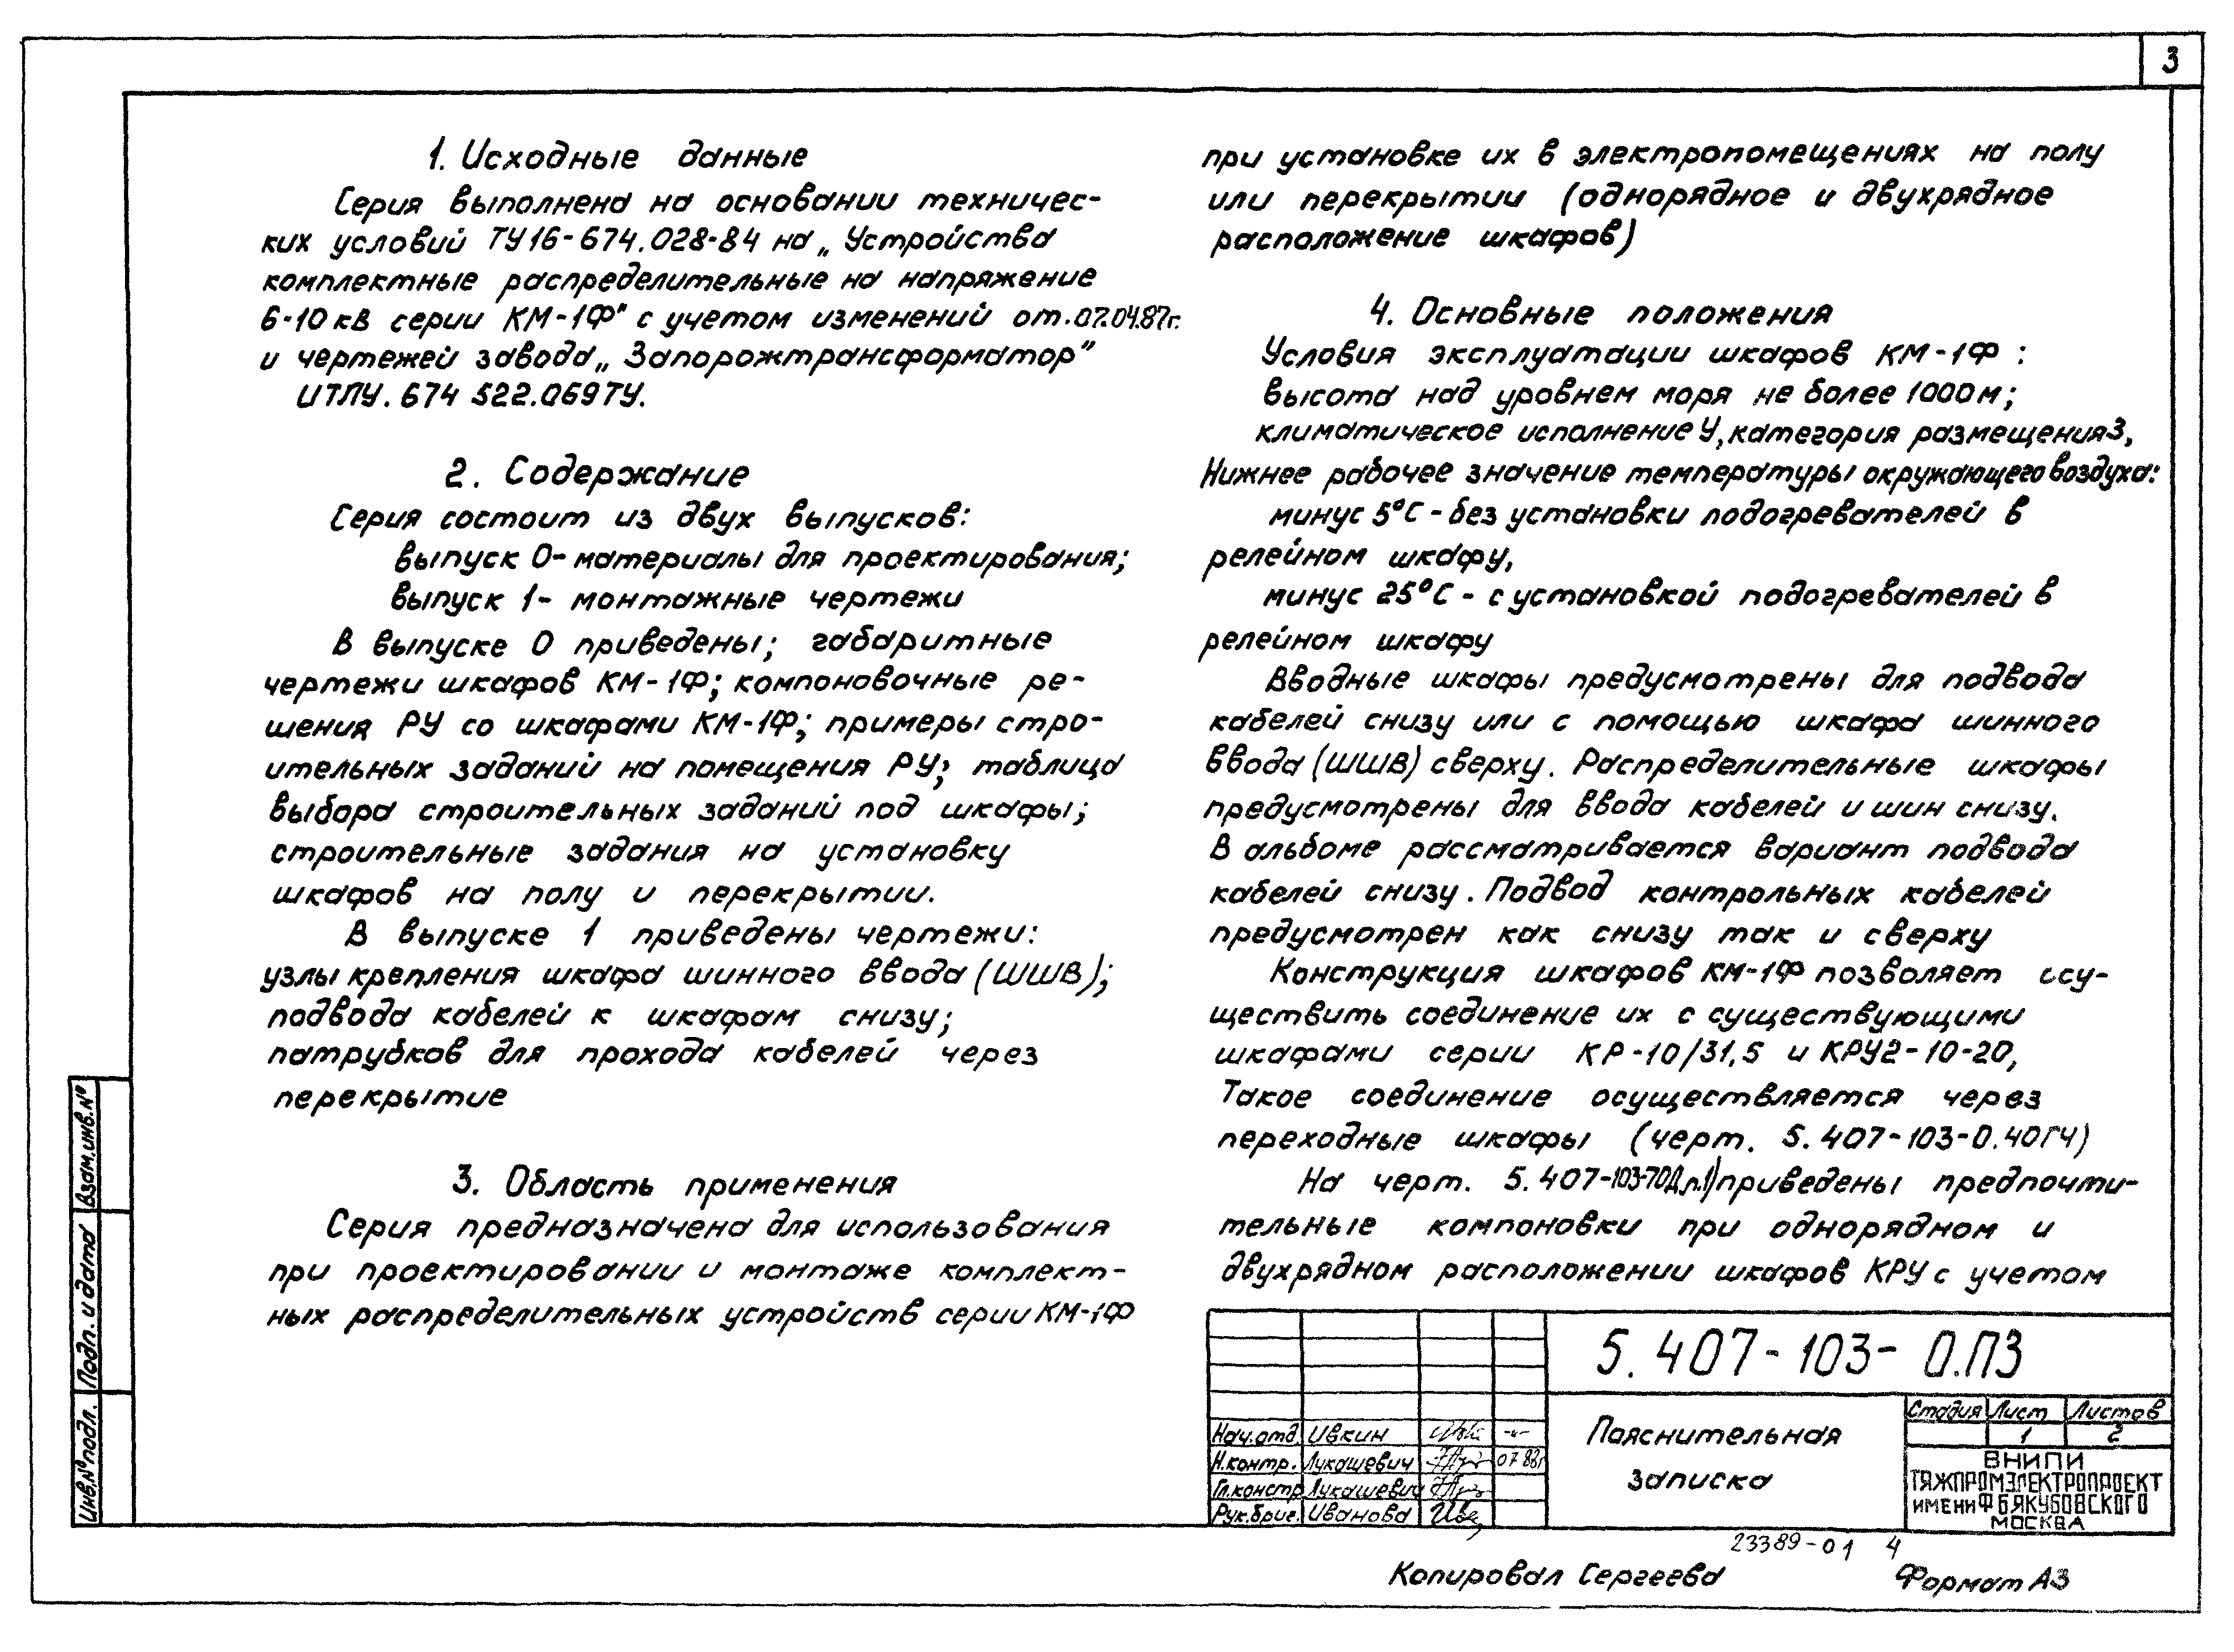 3
1. Исходные данные
Серия выполнена на основании техничес-
ких условий ТУ16-674.028-84 на „Устройства
комплектные распределительные на напряжение
6-10 кВ серии КМ-1Ф" с учетом изменений от.07.04.87г.
и чертежей завода „Запорожтрансформатор"
ИТЛУ.674 522.069ТУ.
2. Содержание
Серия состоит из двух выпусков:
выпуск 0- материалы для проектирования;
выпуск 1- монтажные чертежи
В выпуске 0 приведены; габаритные
чертежи шкафов КМ-1Ф; компоновочные ре-
шения РУ со шкафами КМ-1Ф; примеры стро-
ительных заданий на помещения РУ; таблица
выбора строительных заданий под шкафы;
строительные задания на установку
шкафов на полу и перекрытии.
В выпуске 1 приведены чертежи:
узлы крепления шкафа шинного ввода (ШШВ);
подвода кабелей к шкафам снизу;
патрубков для прохода кабелей через
перекрытие
3. Область применения
Серия предназначена для использования
при проектировании и монтаже комплект-
ных распределительных устройств серии КМ-1Ф
при установке их в электропомещениях на полу
или перекрытии (однорядное и двухрядное
расположение шкафов)
4. Основные положения
Условия эксплуатации шкафов КМ-1Ф :
высота над уровнем моря не более 1000 м;
климатическое исполнение У, категория размещения3,
Нижнее рабочее значение температуры окружающего воздуха:
минус 5°С - без установки подогревателей в
релейном шкафу,
минус 25°С - с установкой подогревателей в
релейном шкафу
Вводные шкафы предусмотрены для подвода
кабелей снизу или с помощью шкафа шинного
ввода (ШШВ) сверху. Распределительные шкафы
предусмотрены для ввода кабелей и шин снизу.
В альбоме рассматривается вариант подвода
кабелей снизу. Подвод контрольных кабелей
предусмотрен как снизу так и сверху
Конструкция шкафов КМ-1Ф позволяет осу-
ществить соединение их с существующими
шкафами серии КР-10/31,5 и КРУ2-10-20,
Такое соединение осуществляется через
переходные шкафы (черт. 5.407-103-0.40ГЧ)
На черт. 5.407-103-70Д л.1) приведены предпочти-
тельные компоновки при однорядном и
двухрядном расположении шкафов КРУ с учетом
Взам.инв.№
Подп. и дата
Инв.№подл.
5.407-103- 0.ПЗ
Нач.отд. Ивкин -"-
Н.контр. Лукашевич 07 88г
Гл.констр Лукашевич
Рук.бриг. Иванова
Пояснительная
записка
Стадия Лист Листов
1 2
ВНИПИ
ТЯЖПРОМЭЛЕКТРОПРОЕКТ
ИМЕНИ Ф БЯКУБОВСКОГО
МОСКВА
23389-01 4
Копировал Сергеева Формат А3